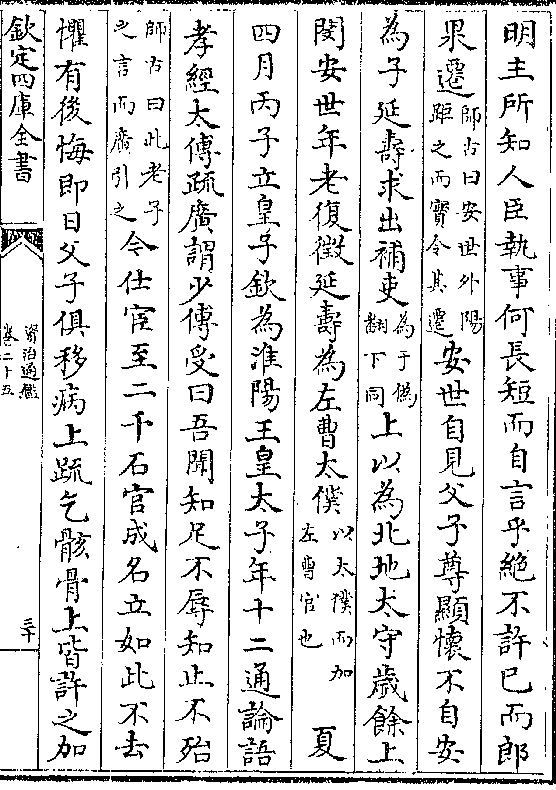 明主所知人臣執事何長短而自言乎絶不許已而郎
果遷師古曰安世外陽距之而實令其遷安世自見父子尊顯懷不自安
為子延壽求出補吏為于偽翻下同上以為北地太守歲餘上
閔安世年老復徵延壽為左曹太僕以太僕而加左曹官也夏
四月丙子立皇子欽為淮陽王皇太子年十二通論語
孝經太傅疏廣謂少傅受曰吾聞知足不辱知止不殆
師古曰此老子之言而廣引之今仕宦至二千石官成名立如此不去
懼有後悔即日父子俱移病上疏乞骸骨上皆許之加
欽定四庫全書
資治通鑑
卷二十五
三十